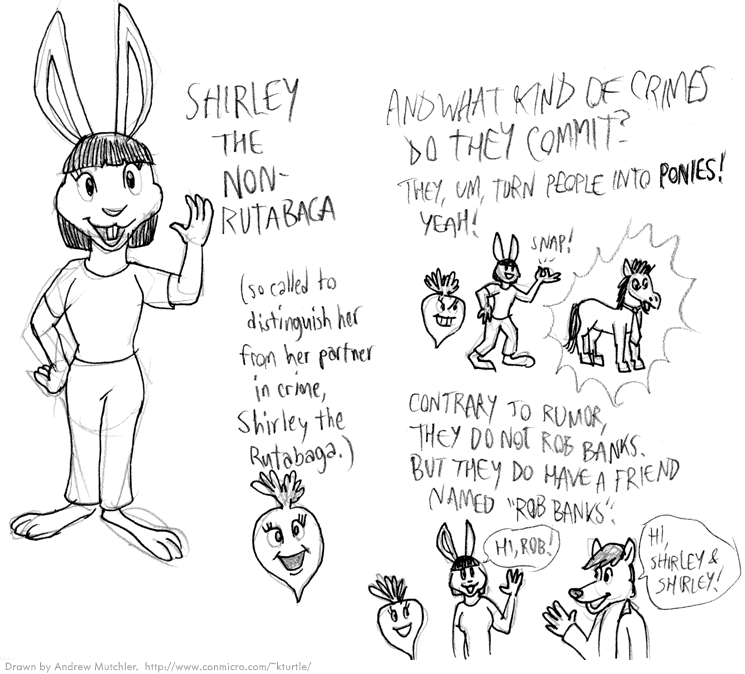 SHIRLEY
THE
NON-
RUTABAGA
(so called to
distinguish her
from her partner
in crime,
Shirley the
Rutabaga.)
AND WHAT KIND OF CRIMES
DO THEY COMMIT?
THEY, UM, TURN PEOPLE INTO PONIES!
YEAH!
SNAP!
CONTRARY TO RUMOR,
THEY DO NOT ROB BANKS.
BUT THEY DO HAVE A FRIEND
NAMED "ROB BANKS".
HI, ROB!
HI,
SHIRLEY &
SHIRLEY!
Drawn by Andrew Mutchler. http://www.conmicro.com/~kturtle/